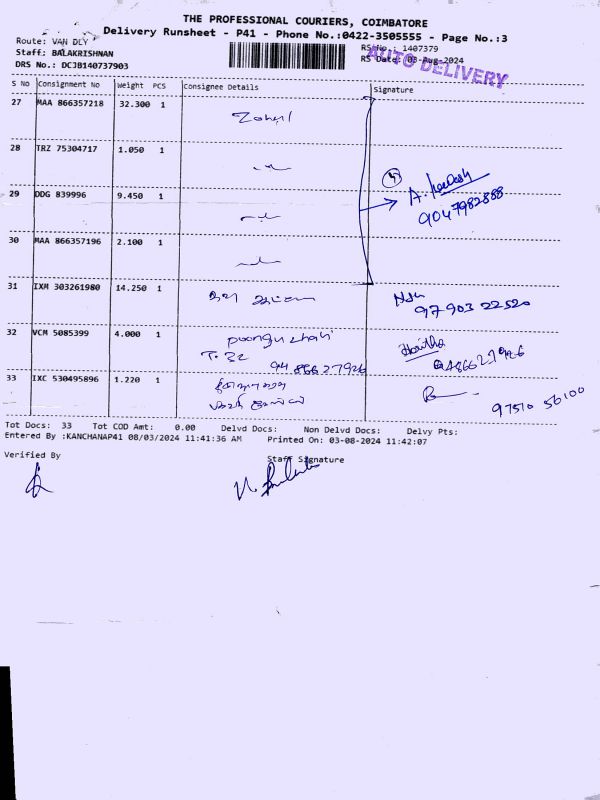 THE PROFESSIONAL COURIERS, COIMBATORE
Delivery Runsheet - P41 - Phone No.:0422-3505555 - Page No.:3
Route: VAN DLY
RS No.: 1407379
Staff: BALAKRISHNAN
RS Date: 03-Aug-2024
AUTO DELIVERY
DRS No.: DCJB140737903
S No Consignment No Weight PCS Consignee Details Signature
27 MAA 866357218 32.300 1
28 TRZ 75304717 1.050 1
4
29 DDG 839996 9.450 1
9047982888
30 MAA 866357196 2.100 1
31 IXM 303261980 14.250 1
97903 22520
32 VCM 5085399 4.000 1 poonguzhali
T. 32 94 86627926
Haritha
9486627926
33 IXC 530495896 1.220 1
97510 56100
Tot Docs: 33 Tot COD Amt: 0.00 Delvd Docs: Non Delvd Docs: Delvy Pts:
Entered By :KANCHANAP41 08/03/2024 11:41:36 AM Printed On: 03-08-2024 11:42:07
Verified By Staff Signature